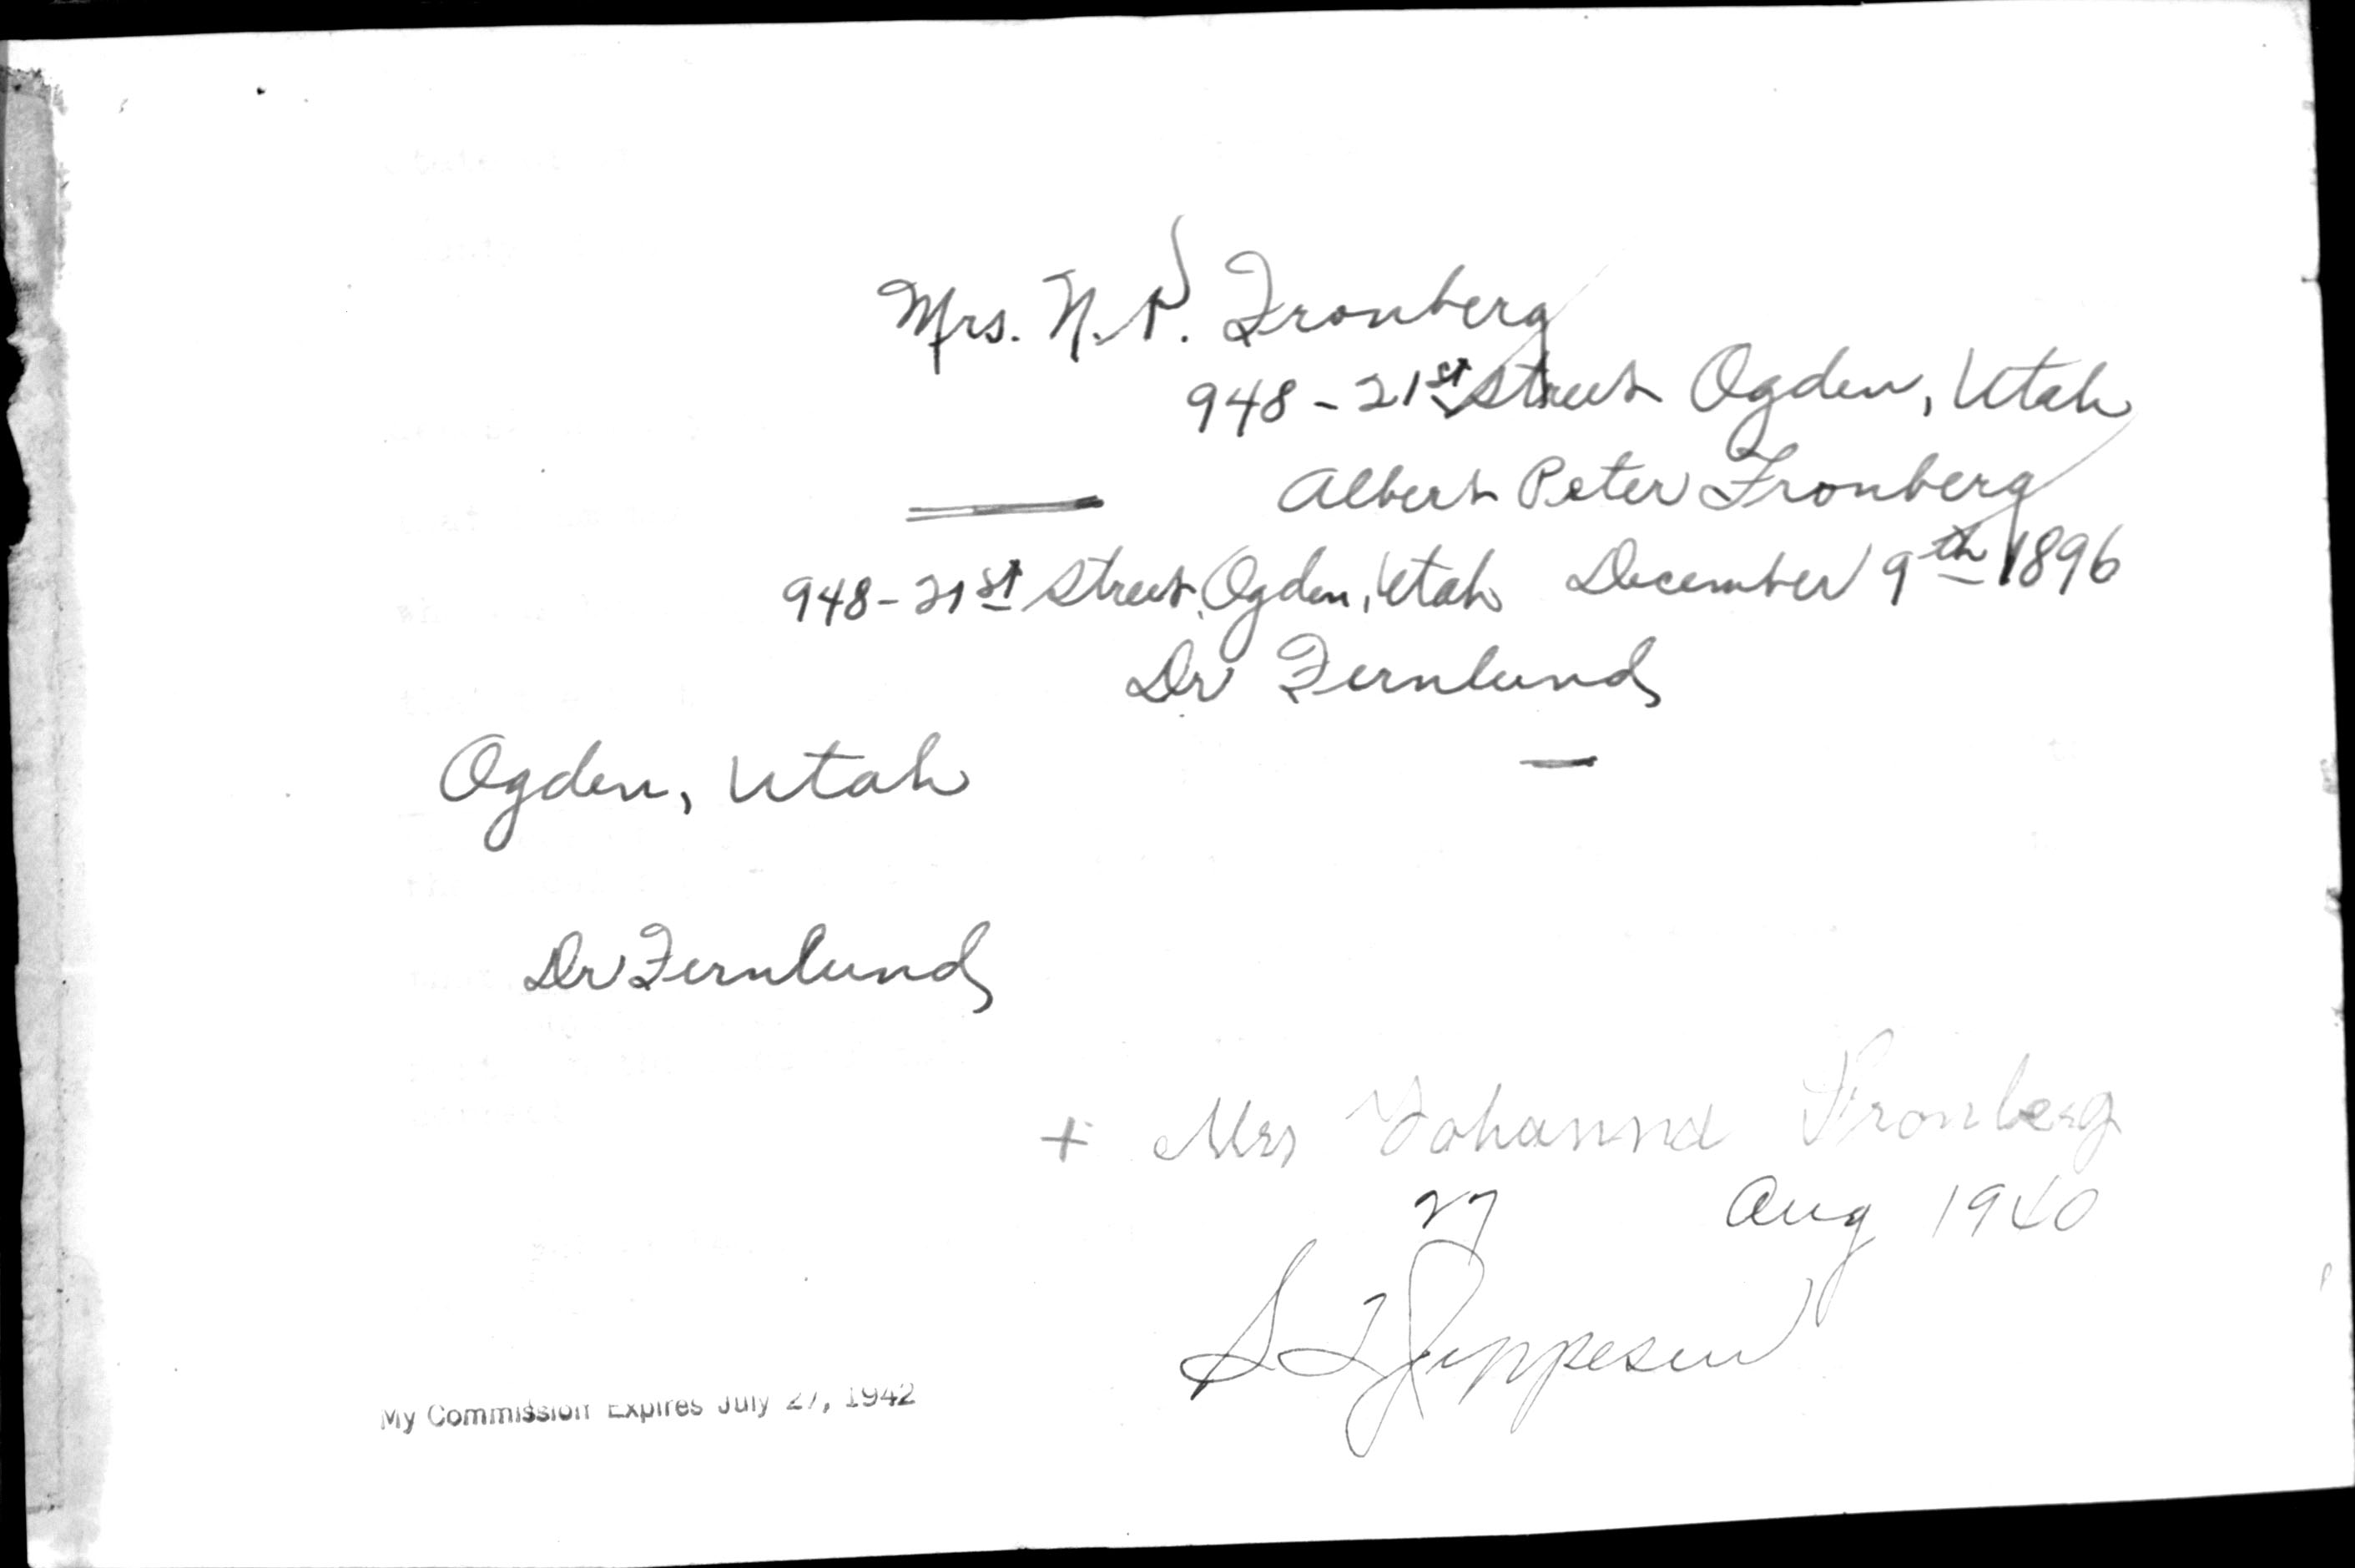 Mrs. N. P. Fronberg
948 - 21st Street Ogden, Utah
Albert Peter Fronberg
948 - 21st Street, Ogden, Utah December 9th 1896
Dr Fernlund
Ogden, Utah
Dr Fernlund
+ Mrs Johanna Fronberg
27 Aug 1940
Jeppesen
My Commission Expires July 27, 1942